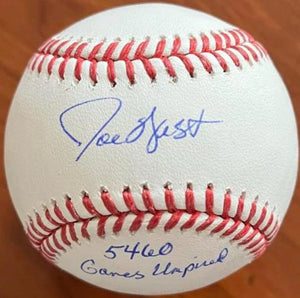 Joe West
5460
Games Umpired